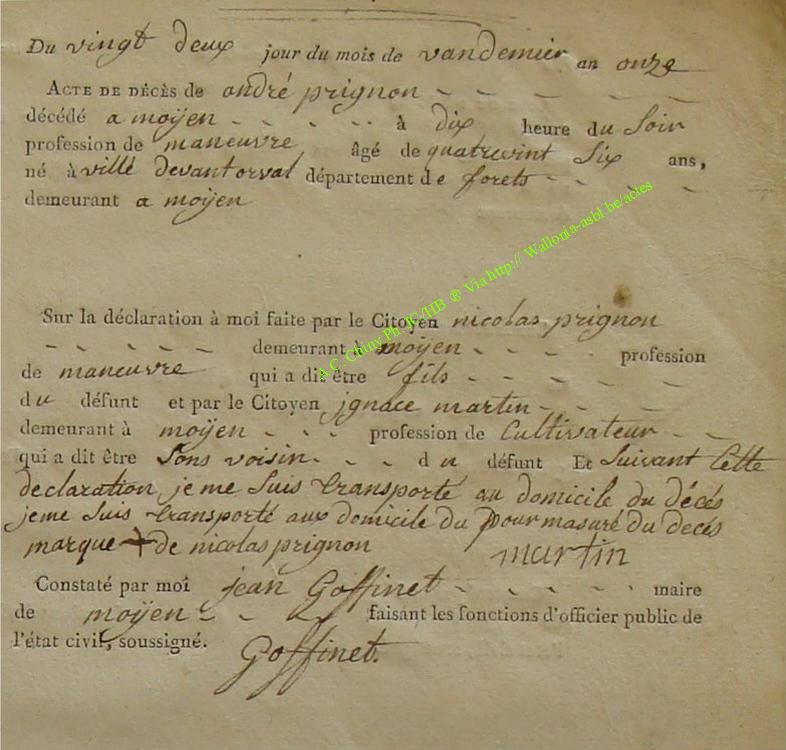 Du vingt deux jour du mois de vandemier an onze
Acte de décès de andré prignon - - - - - -
décédé a moÿen - - - - - à dix heure du Soir
profession de maneuvre âgé de quatrevint Six ans,
né à ville devantorval département de forets - - - -
demeurant a moÿen
Sur la déclaration à moi faite par le Citoyen nicolas prignon
- - - - - demeurant à moÿen - - - - profession
de maneuvre qui a dit être fils - - - - -
du défunt et par le Citoyen jgnace martin - - - -
demeurant à moÿen - - - profession de Cultivateur - -
qui a dit être Sons voisin - - - du défunt Et Suivant Cette
declaration je me Suis transporté au domicile du décés
jeme Suis transporté aux domicile du pour masuré du decés
marque + de nicolas prignon martin
Constaté par moi jean Goffinet - - - - - maire
de moÿen - - - faisant les fonctions d'officier public de
l'état civil, soussigné. Goffinet.
A.C. Chiny Ph JC/HB ® Via http:// Wallonia-asbl.be/actes